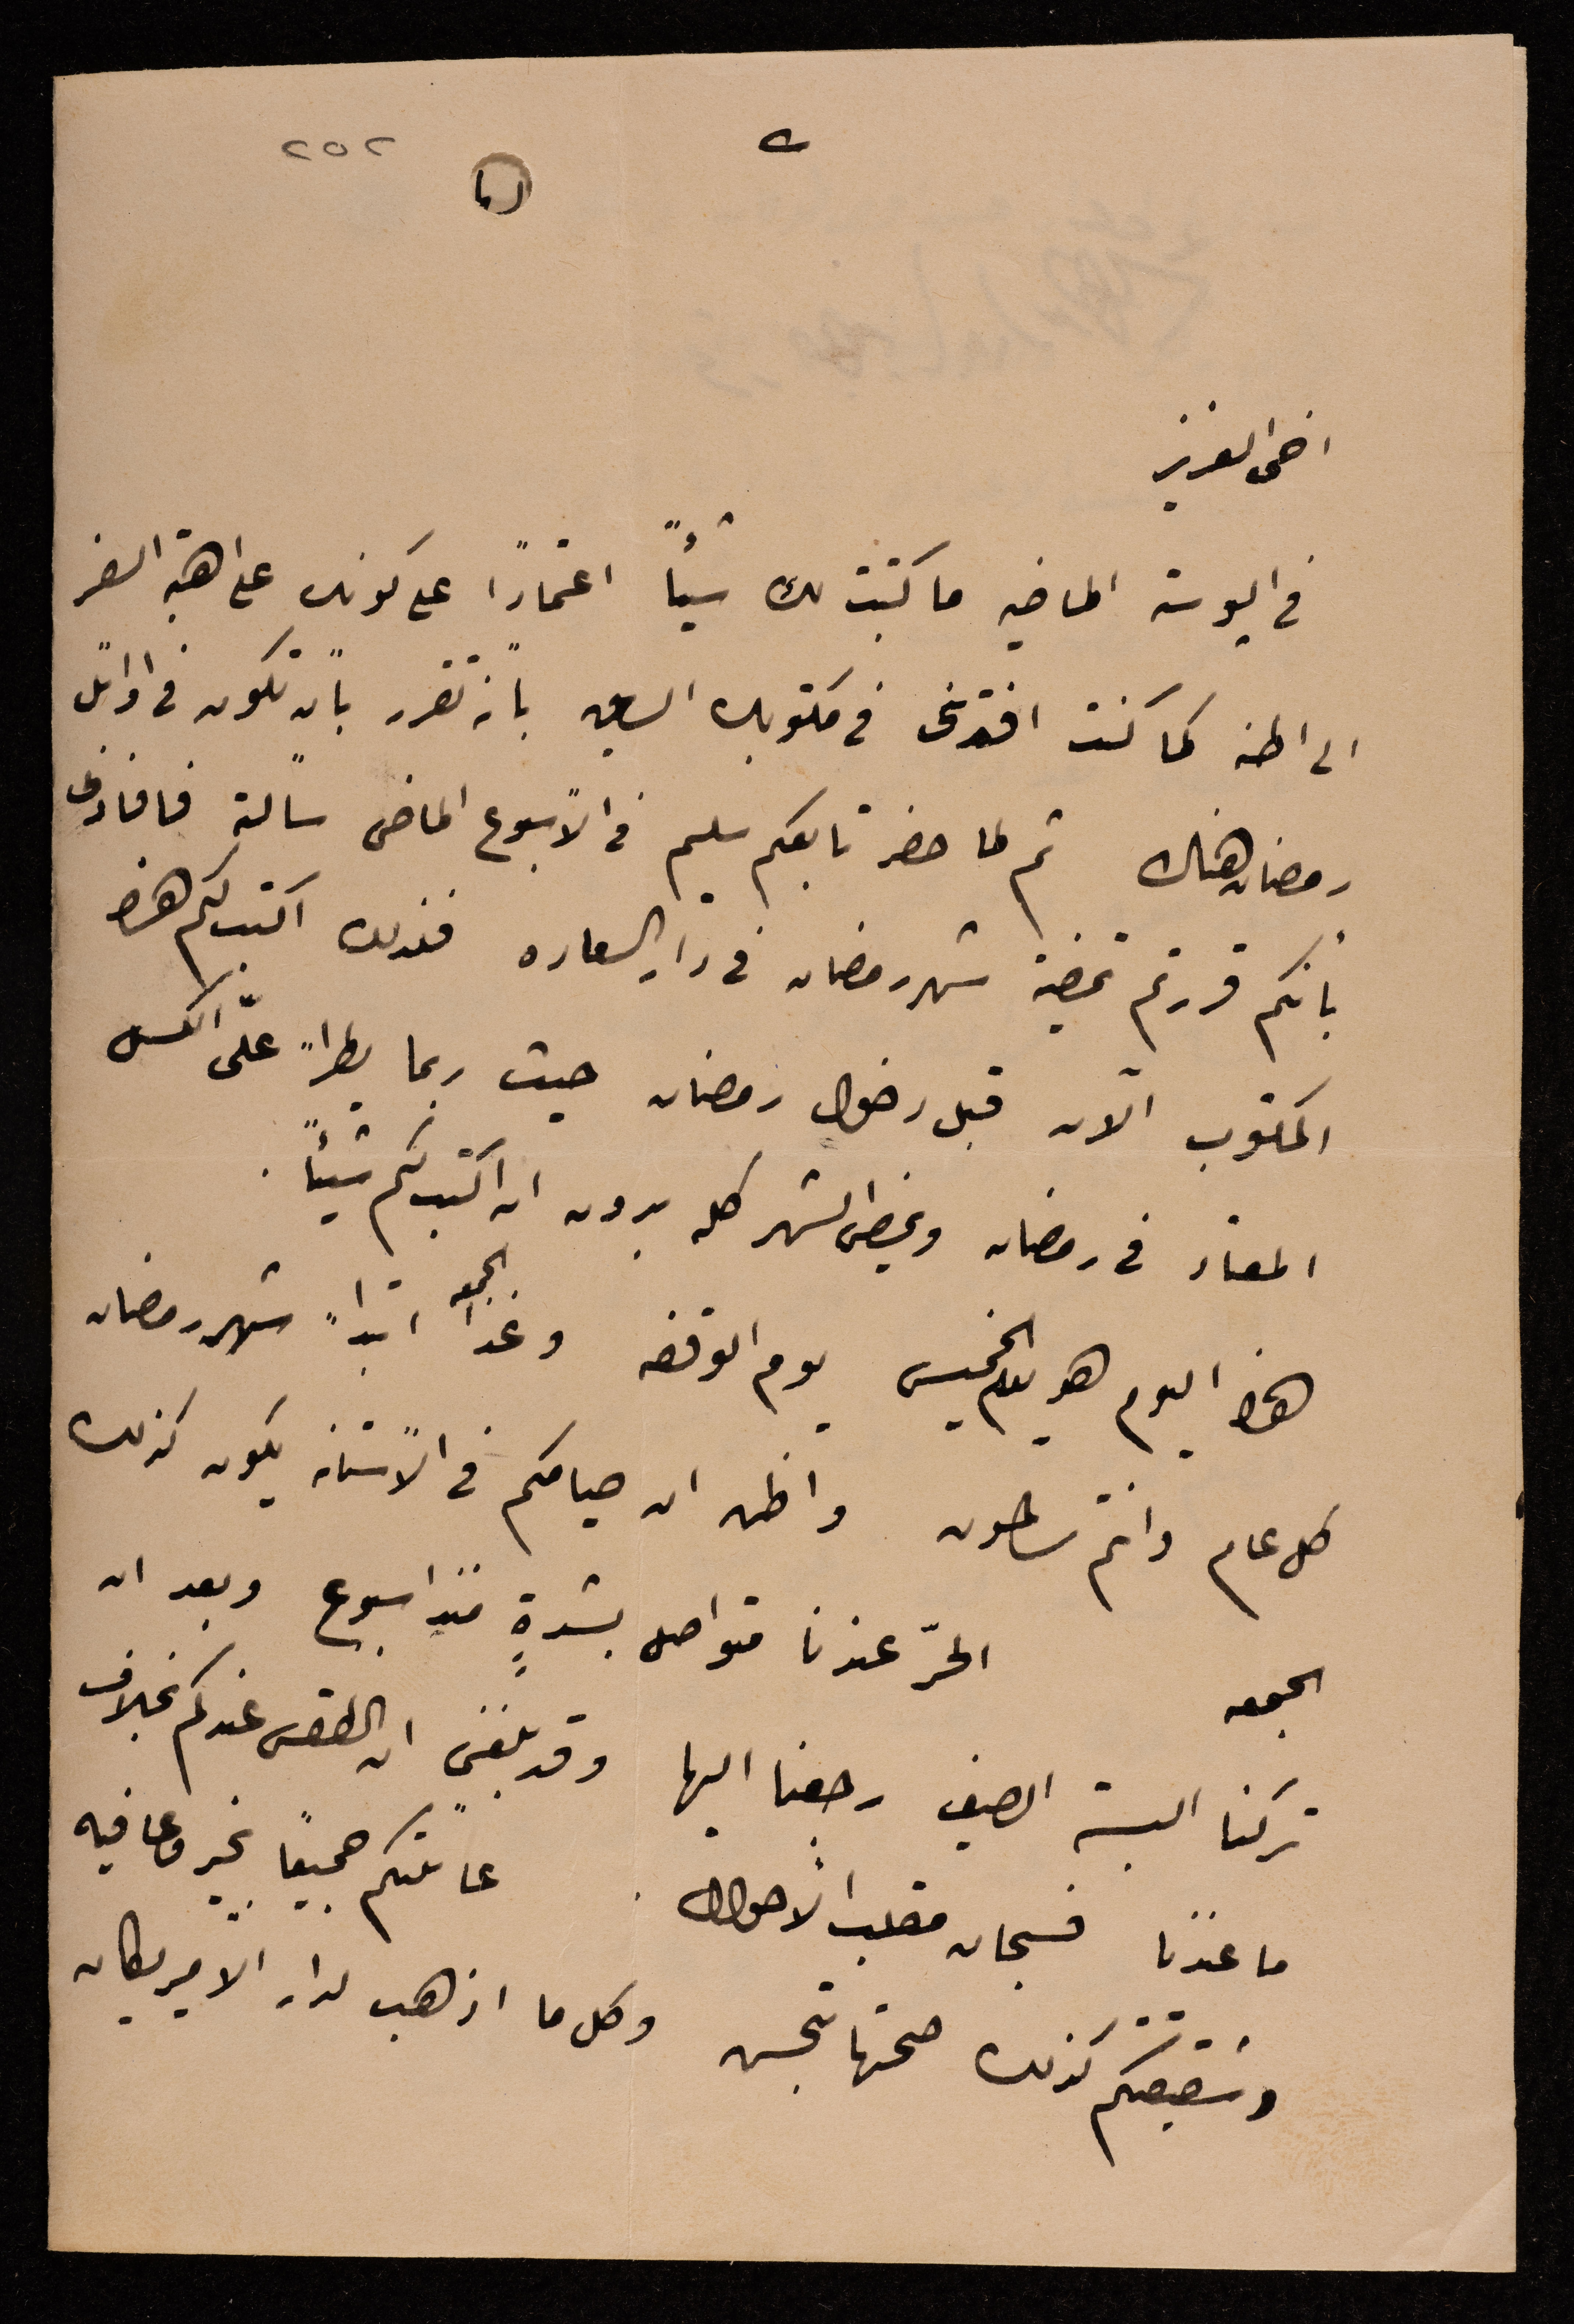 ٢٥٢
اخى العزيز
فى البوسته الماضيه ما كتبت لك شيئاً اعتماداً على كونك على اهبة السفر
الى اطنه كما كنت افدتنى فى مكتوبك السابق بأنه تقرر بأن تكون فى اوائل
رمضان هناك ثم لما حضر تابعكم سليم فى الأسبوع الماضى سألته فافادنى
بأنكم قررتم تمضية شهر رمضان فى دار السعاده فلذلك اكتب لكم هذا
المكتوب الآن قبل دخول رمضان حيث ربما يطرأ علىّ الكسل
المعتاد فى رمضان ويمضى الشهر كله بدون ان اكتب لكم شيئاً .
هذا اليوم هو يوم الخميس يوم الوقفه وغداً الجمعه ابتداء شهر رمضان
كل عام وانتم سالمون واظن ان صيامكم فى الأستانه يكون كذلك
الجمعه الحرّ عندنا متواصل بشدةٍ منذ اسبوع وبعد ان
تركنا البسة الصيف رجعنا اليها وقد بلغنى ان الطقس عندكم بخلاف
ما عندنا فسبحان مقلب الأحوال . عائلتكم جميعاً بخير وعافيه
وشقيقتكم كذلك صحتها تتحسن وكل ما اذهب لدار الاميريكان